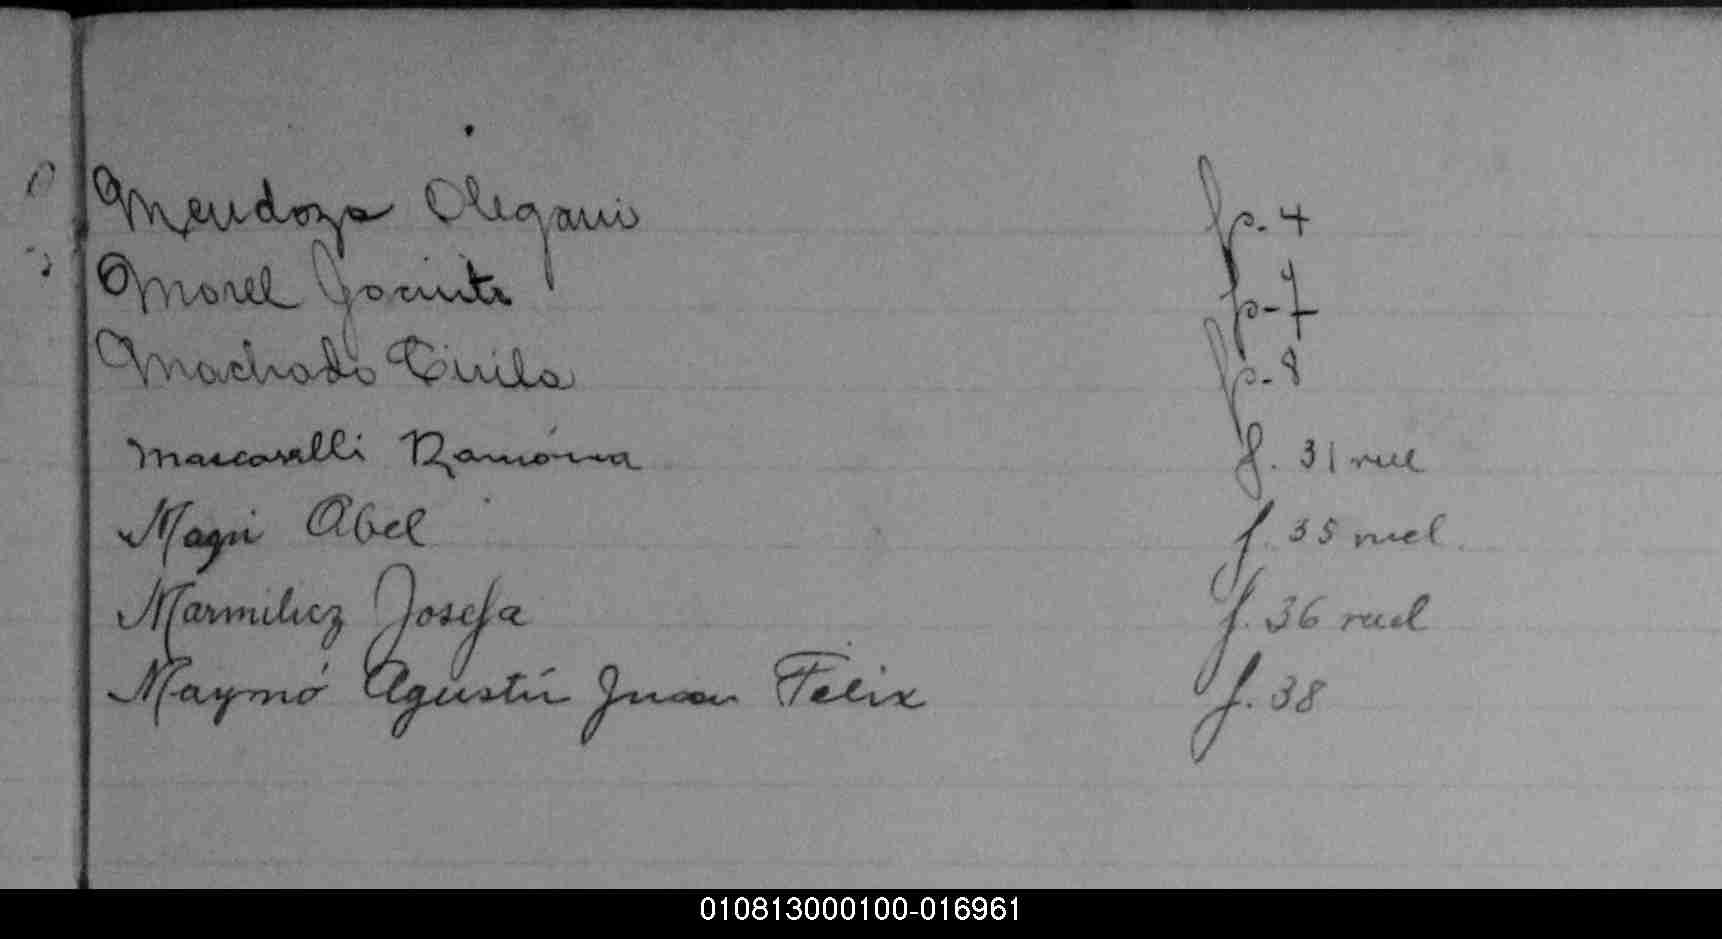 Mendoza Olegari fo. 4
Morel Jacinto fo. 7
Machado Cirila fo. 8
Mascarelli Ramóna f. 31 vuel
Magri Abel f. 35 vuel.
Marmilicz Josefa f. 36 vuel
Maymó Agustín Juan Félix f. 38
010813000100-016961